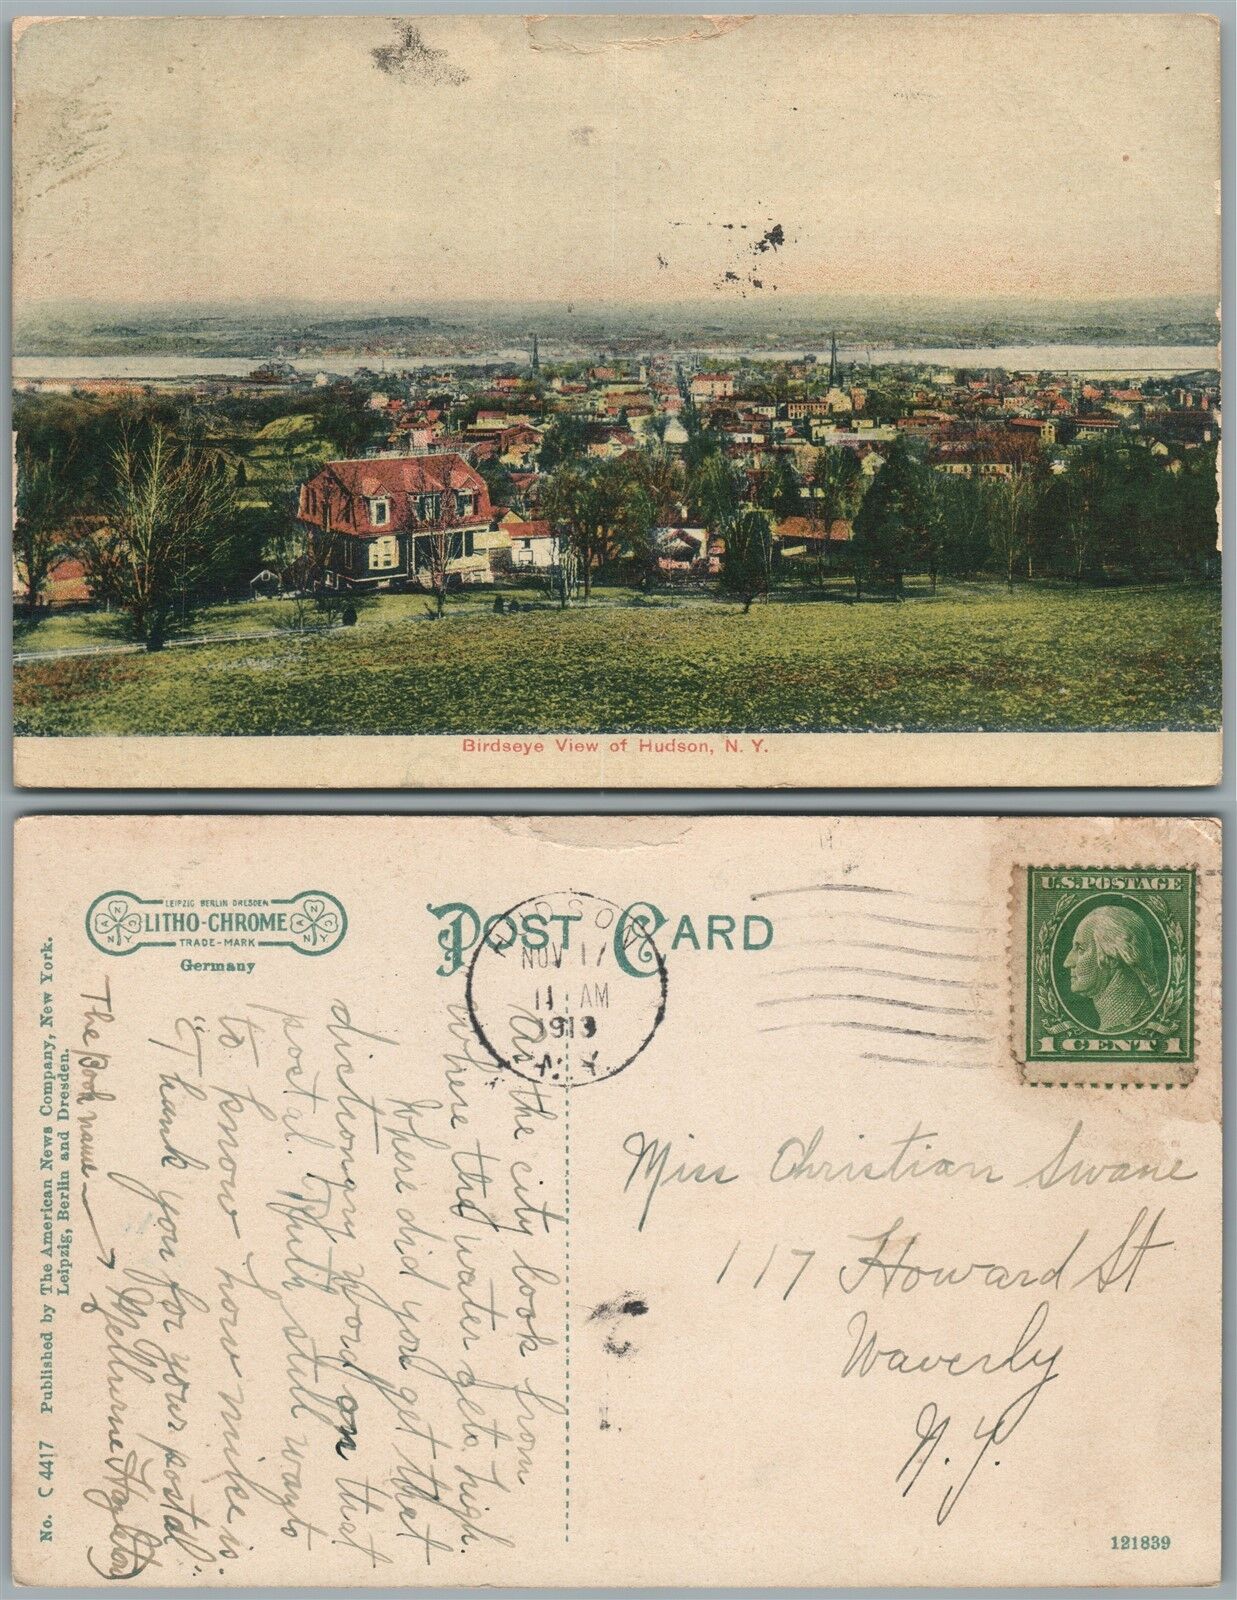 Birdseye View of Hudson, N. Y.
LEIPZIG BERLIN DRESDEN
LITHO-CHROME
TRADE-MARK
Germany
POST CARD
HUDSON
NOV 17
11 AM
1913
N. Y.
U.S. POSTAGE
1 CENT 1
No. C 4417 Published by The American News Company, New York.
Leipzig, Berlin and Dresden.
As the city look from
where the water gets high.
Where did you get that
dictionary word on that
postal. Ruth still wants
to know how mike is.
"Thank you for your postal".
The Book name
Miss Christian Swane
117 Howard St
Waverly
N. Y.
121839